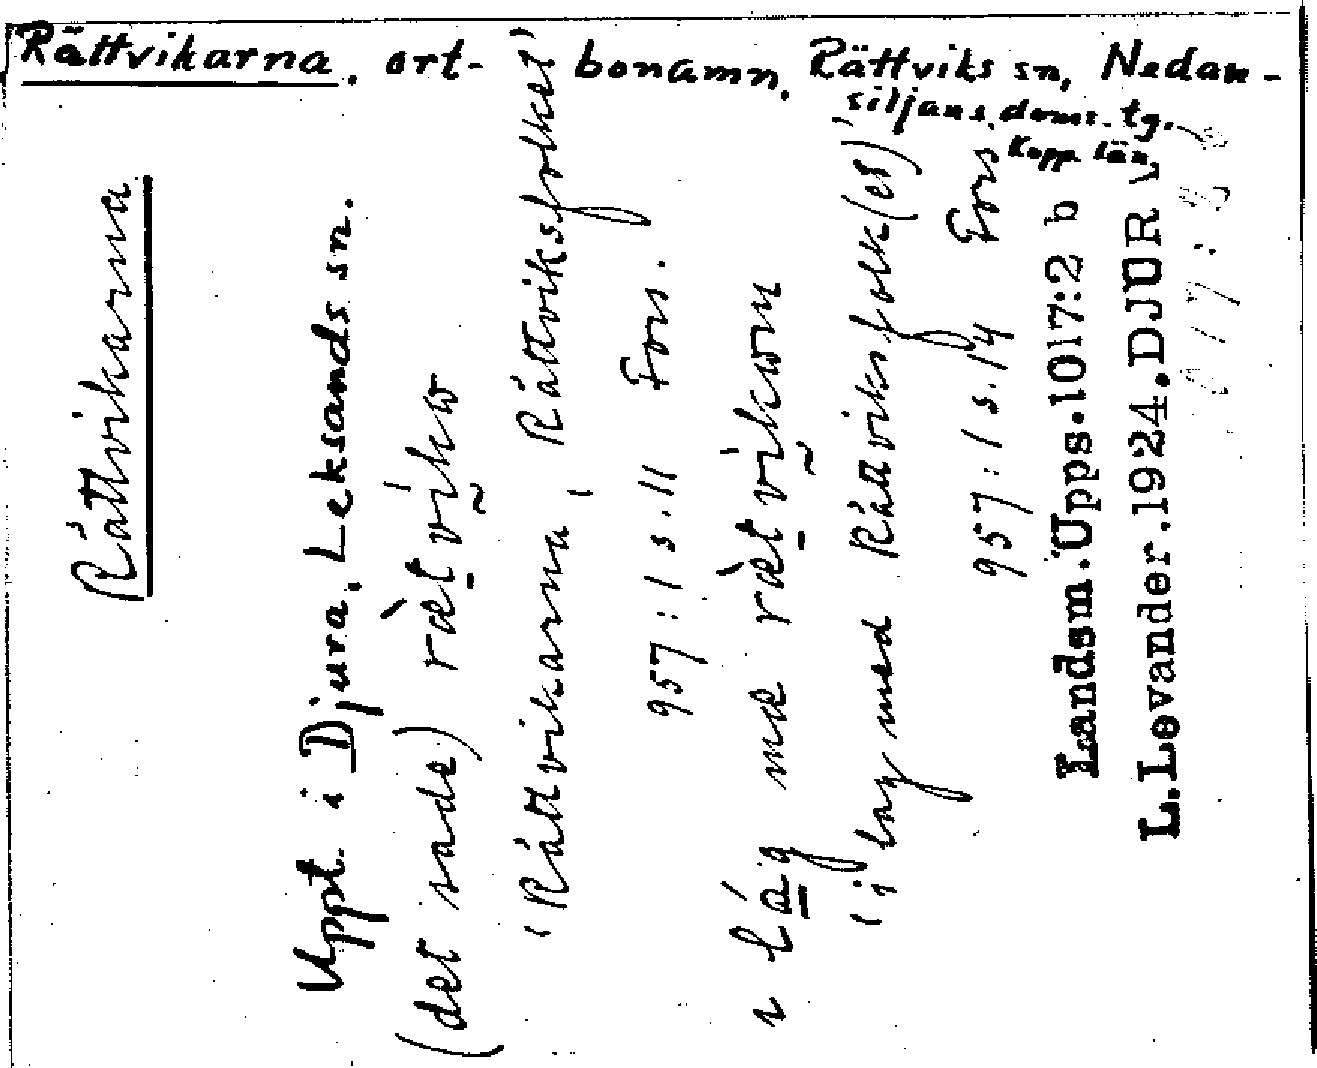 Rättvikarna. ort- bonamn. Rättviks sn, Nedan-
siljans doms. tg.
Kopp. län
Rättvikarna
Uppt. i Djura, Leksands sn.
(det sade)
'Rättvikarna, Rättviksfolket'
957:1 s. 11 Fors.
'i lag med Rättviksfolk(et)'
957:1 s. 14 Fors
Landsm. Upps. 1017:2 b
L. Levander. 1924. DJUR